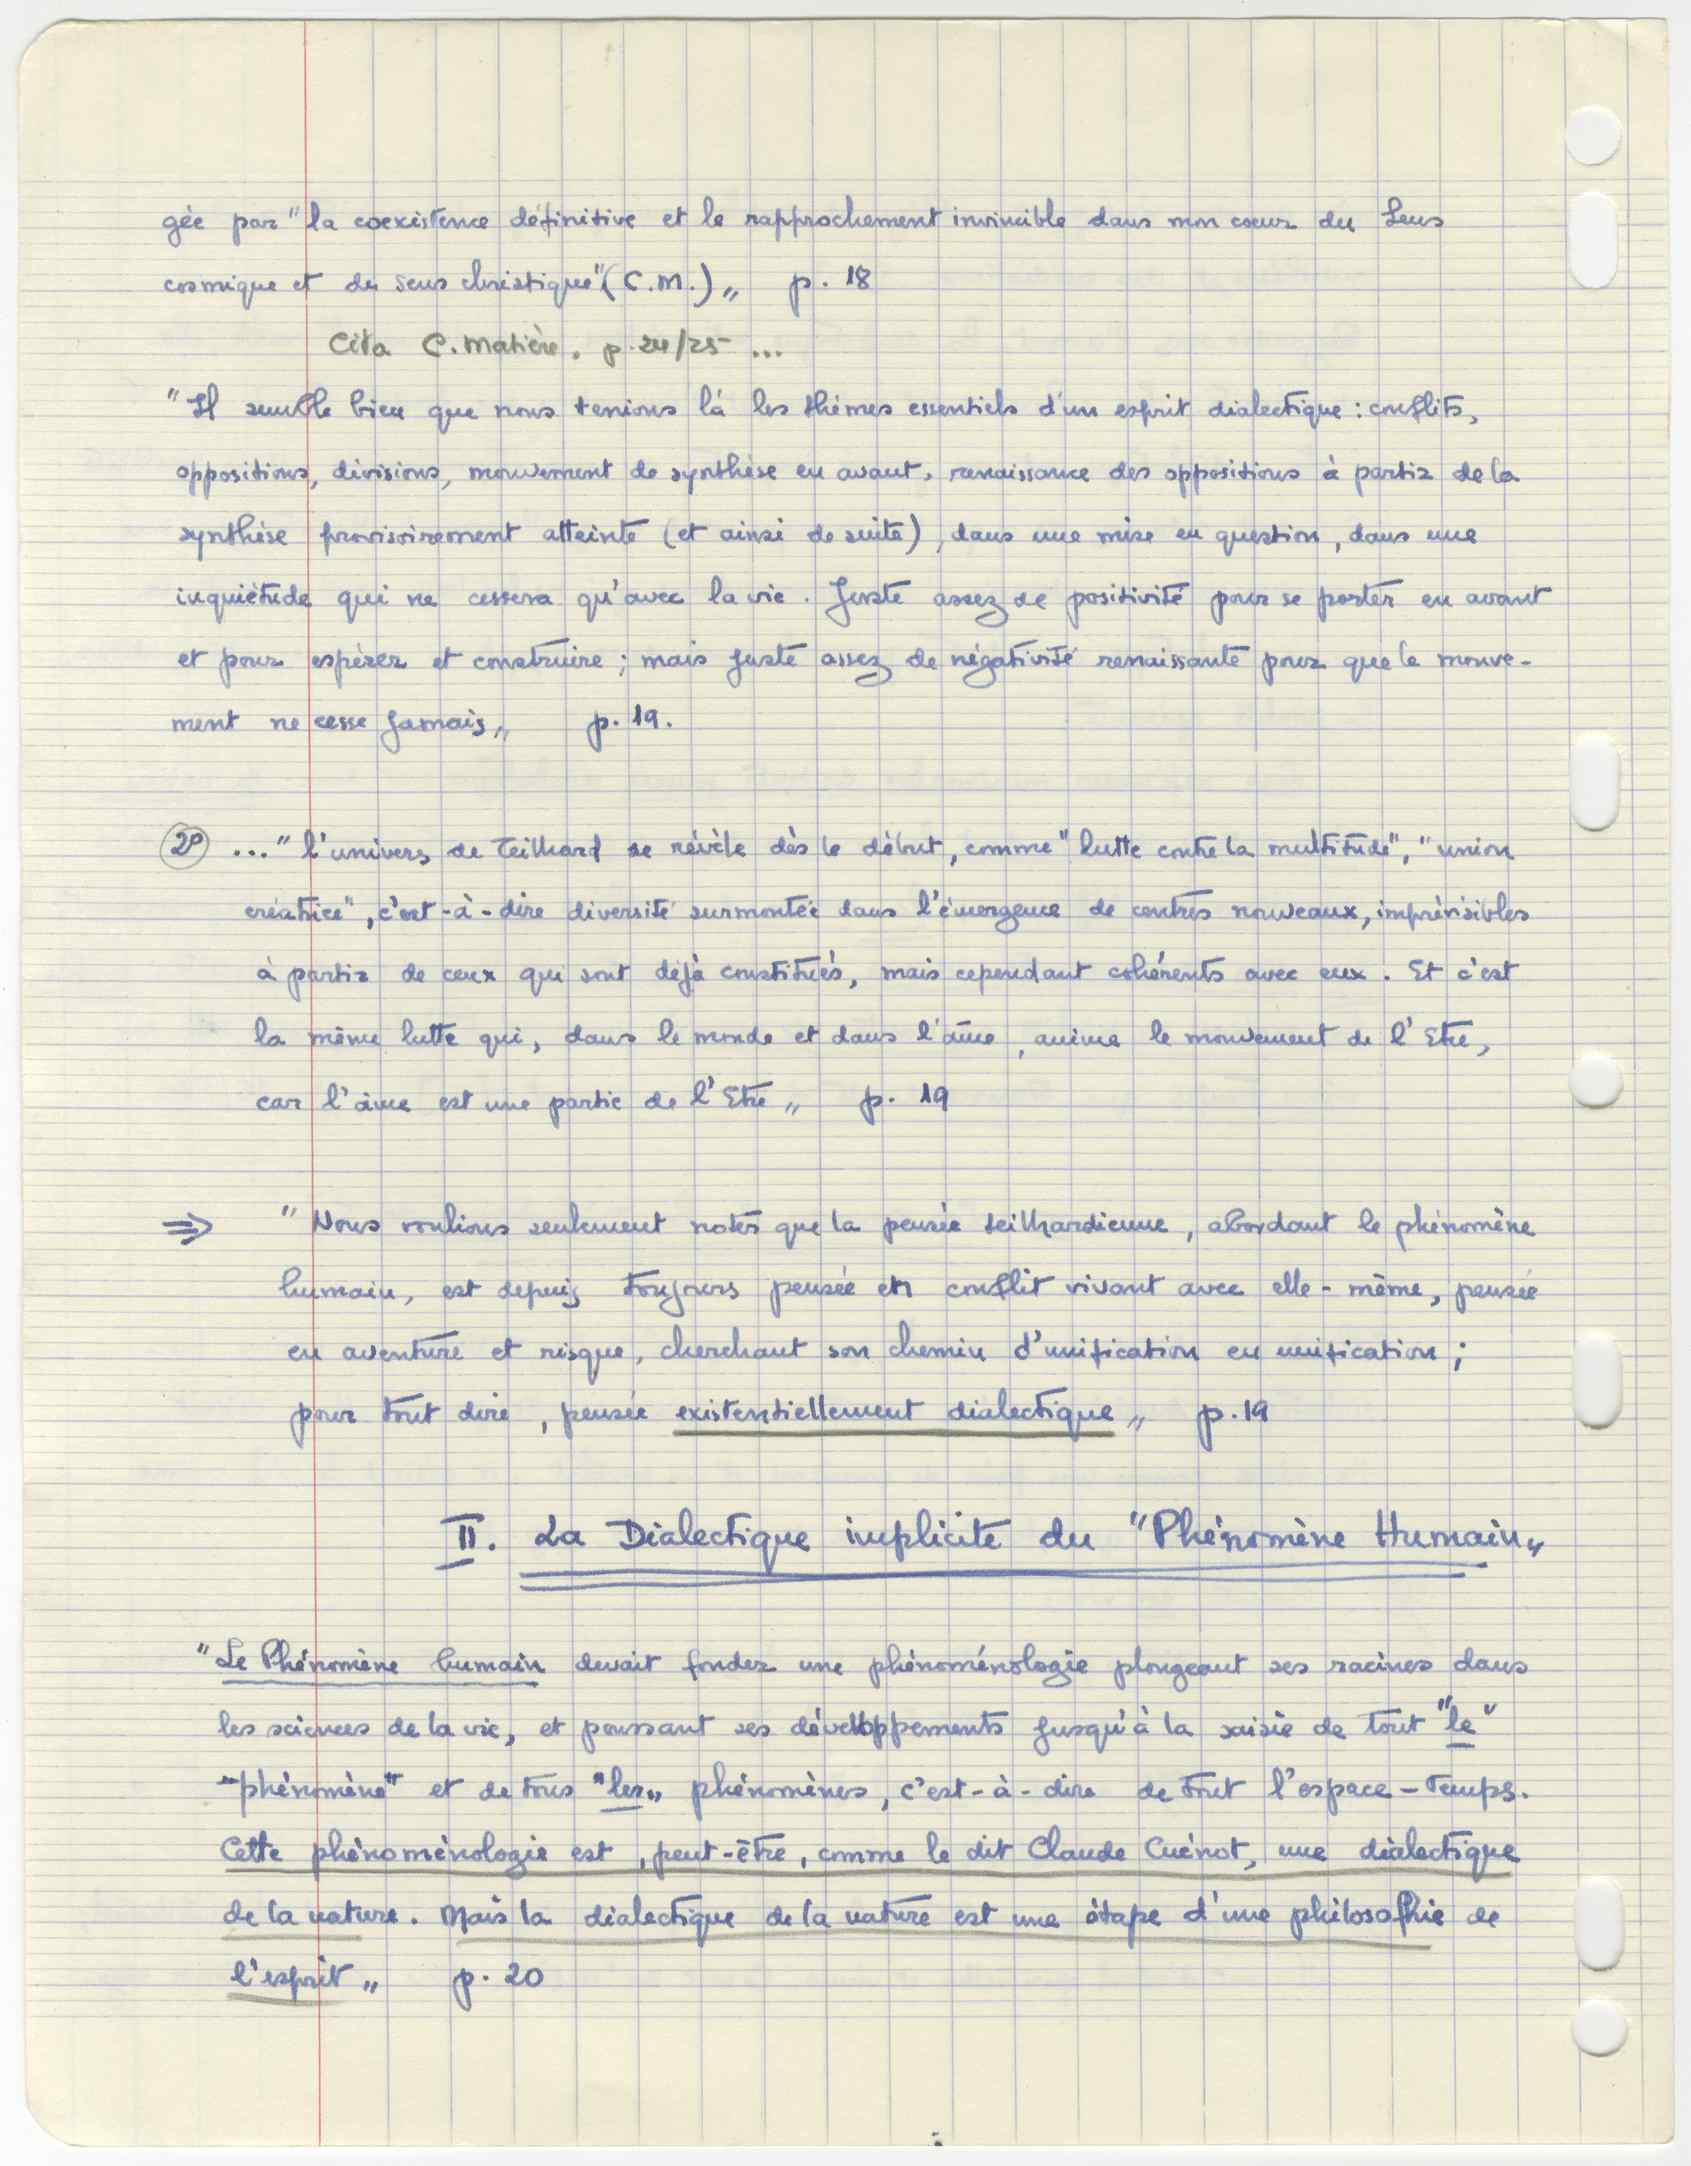 gée par "la coexistence définitive et le rapprochement invincible dans mon coeur du Sens
cosmique et du sens christique" (C.M.) „ p. 18
Cita C. Matière, p. 24/25 ...
"Il semble bien que nous tenions là les thèmes essentiels d'un esprit dialectique : conflits,
oppositions, divisions, mouvement de synthèse en avant, renaissance des oppositions à partir de la
synthèse provisoirement atteinte (et ainsi de suite), dans une mise en question, dans une
inquiètude qui ne cessera qu'avec la vie. Juste assez de positivité pour se porter en avant
et pour espérer et construire ; mais juste assez de négativité renaissante pour que le mouve-
ment ne cesse jamais„ p. 19.
2º ... "l'univers de Teilhard se révèle dès le début, comme "lutte contre la multitude", "union
créatrice", c'est-à-dire diversité surmontée dans l'émergence de centres nouveaux, imprévisibles
à partir de ceux qui sont déjà constitués, mais cependant cohérents avec eux. Et c'est
la même lutte qui, dans le monde et dans l'âme, anime le mouvement de l'Etre,
car l'âme est une partie de l'Etre „ p. 19
⇒ "Nous voulions seulement noter que la pensée teilhardienne, abordant le phénomène
humain, est depuis toujours pensée en conflit vivant avec elle-même, pensée
en aventure et risque, cherchant son chemin d'unification en unification ;
pour tout dire, pensée existentiellement dialectique „ p. 19
II. La Dialectique implicite du "Phénomène Humain„
"Le Phénomène humain devait fonder une phénoménologie plongeant ses racines dans
les sciences de la vie, et poussant ses développements jusqu'à la saisie de tout "le"
"phénomène" et de tous "les„ phénomènes, c'est-à-dire de tout l'espace-temps.
Cette phénoménologie est, peut-être, comme le dit Claude Cuénot, une dialectique
de la nature. Mais la dialectique de la nature est une étape d'une philosophie de
l'esprit „ p. 20